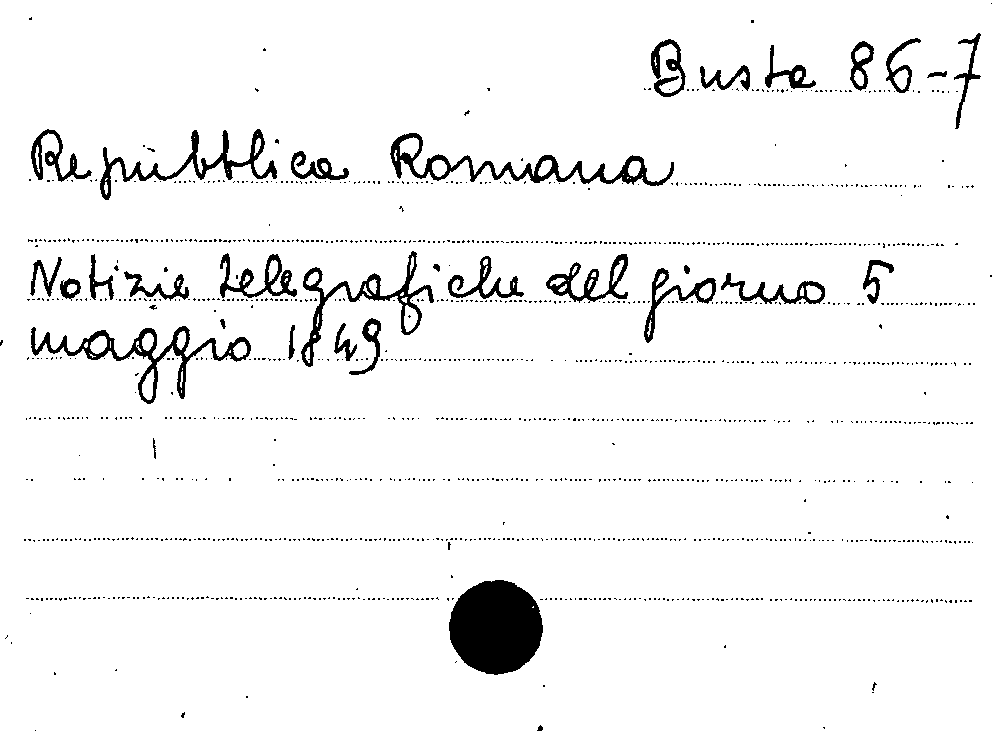 Busta 86-7
Repubblica Romana
Notizie telegrafiche del giorno 5
maggio 1849